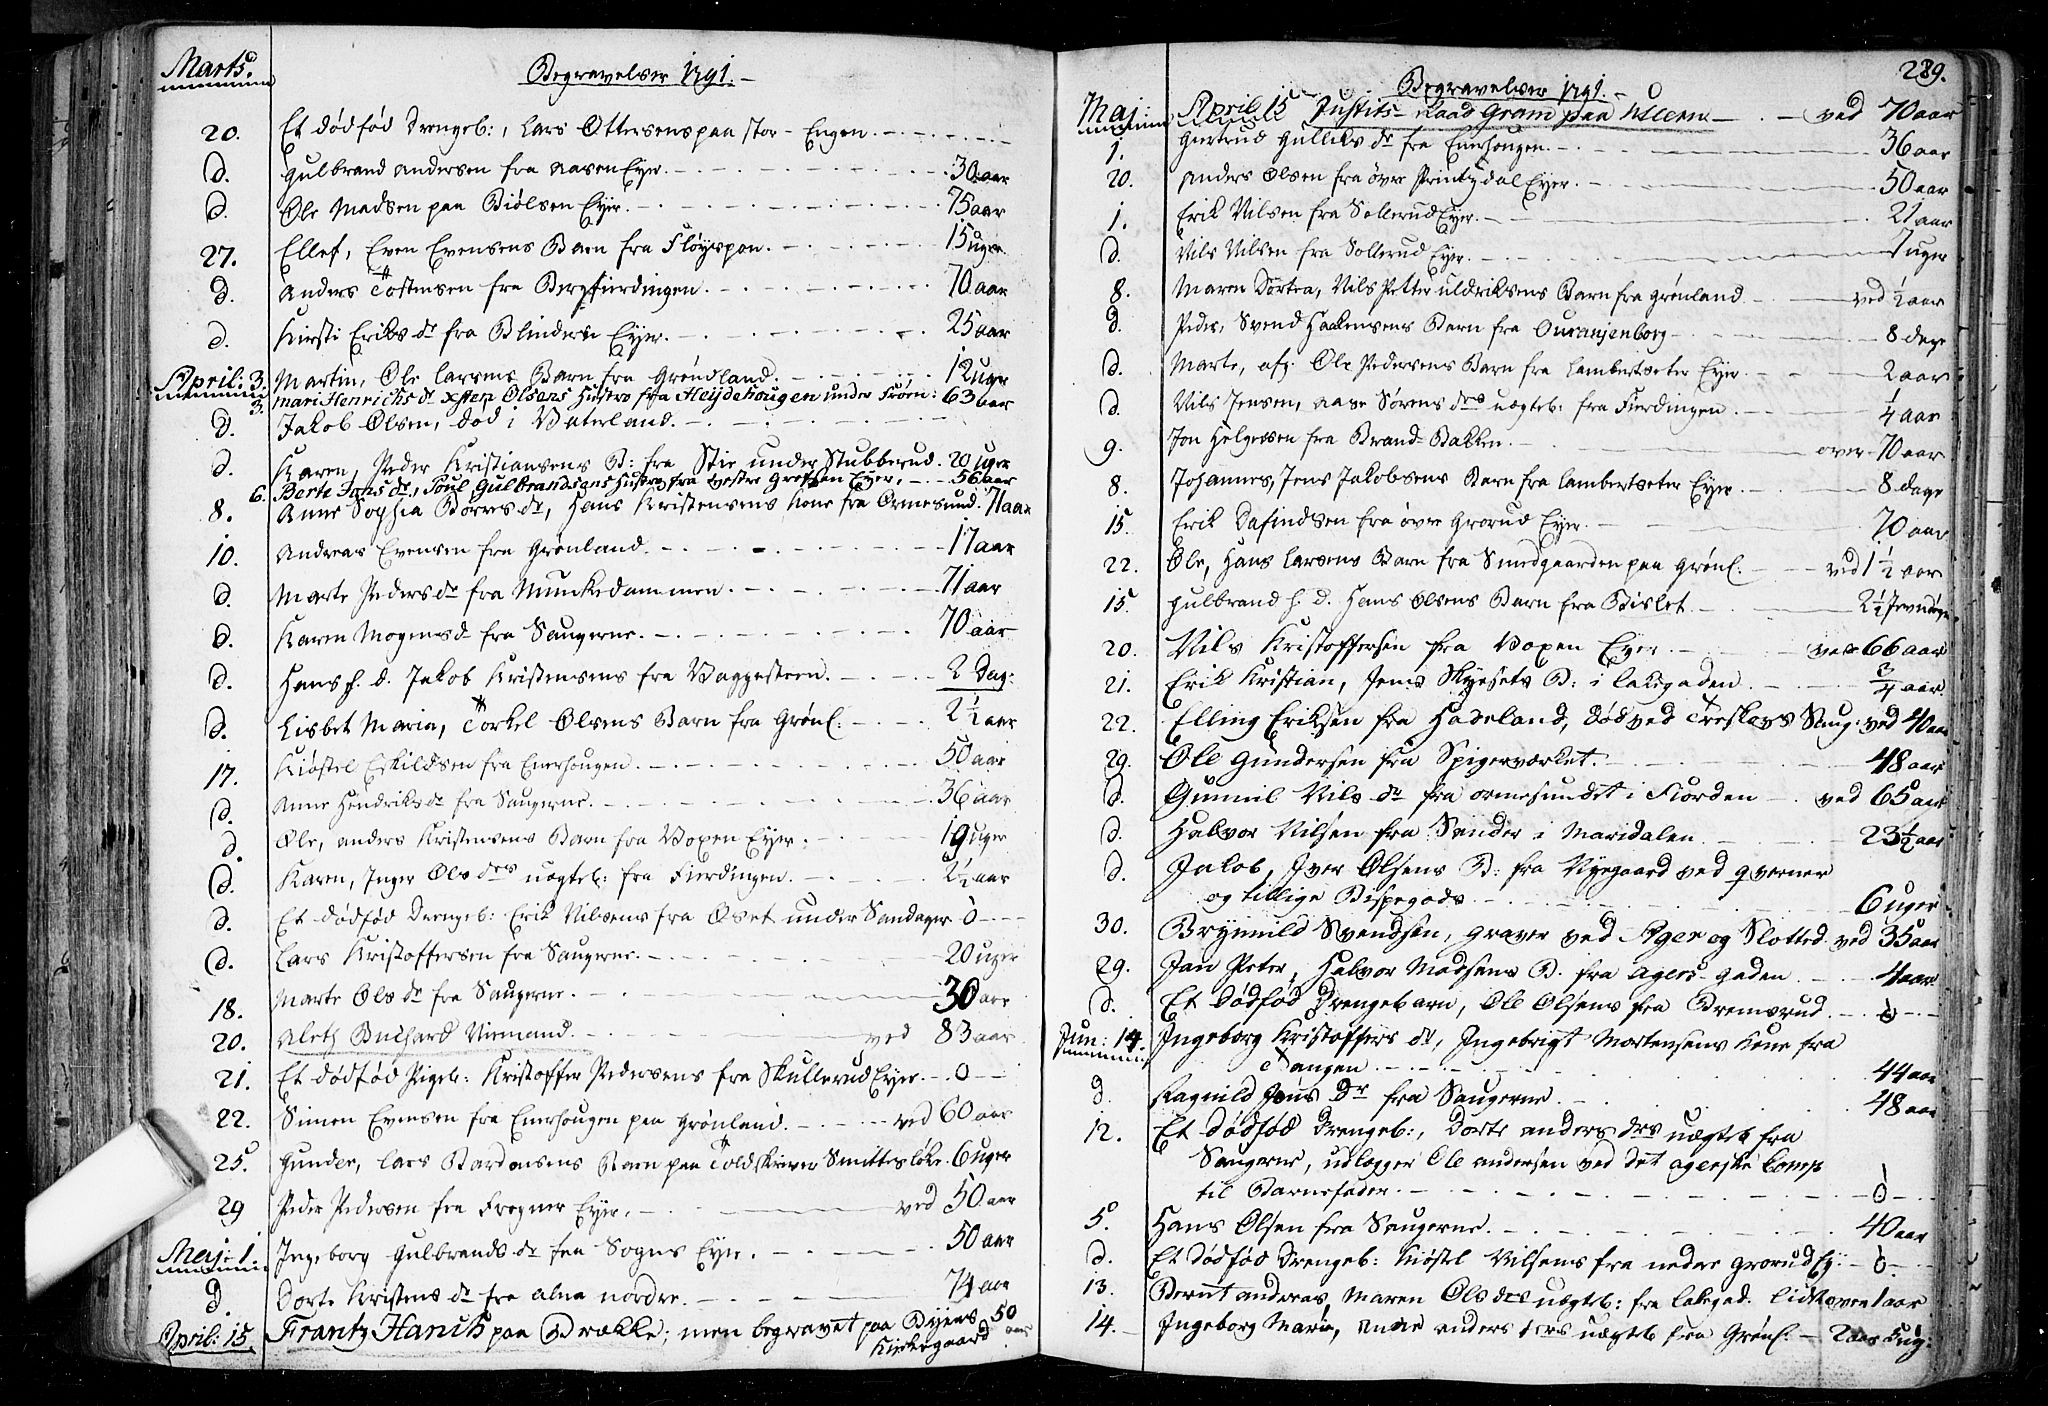 Marts.
Begravelser 1791.
20. Et dødfød Drengeb:, Lars Ottersens paa Stor-Engen
d. Gulbrand Andersen fra Aasen Eyer. 30 aar
d. Ole Madsen paa Biølsen Eyer. 75 aar
27. Ellef, Even Evensens Barn fra Fløyspon. 15 uger
d. Anders Tostensen fra Bergfierdingen. 70 aar
d. Kirsti Eriks dr fra Blindern Eyer. 25 aar
April: 3. Martin, Ole Larsens Barn fra Grønland. 12 uger
3. Mari Henrichs dr Xsten Olsens Hustro fra Heydehougen under Frøen: 63 aar
d. Jakob Olsen, død i Vaterland.
d. Karen, Peder Kristiansens B: fra Stie under Stubberud. 20 uger
6. Berte Jans dr, Poul Gulbrandsens Hustro fra vestre Grefsen Eyer, 56 aar
8. Anne Sophia Børres dr, Hans Kristensens Kone fra Ormesund. 71 aar
10. Andreas Evensen fra Grønland. 17 aar
d. Marte Peders dr fra Munkedammen. 71 aar
d. Karen Mogens dr fra Saugerne. 70 aar
d. Hans h. d. Jakob Kristensens fra Vaggesteen. 2 Dag:
d. Lisbet Maria, Torkel Olsens Barn fra Grønl. 2 1/2 aar
17. Kiøstel Eskildsen fra Enerhougen. 50 aar
d. Anne Hendriks dr fra Saugerne. 36 aar
d. Ole, Anders Kristensens Barn fra Voxen Eyer. 19 uger
d. Karen, Inger Ols drs uægteb: fra Fierdingen. 2 1/2 aar
d. Et dødfød Drengeb: Erik Nilsens fra Øset under Sandager 0
d. Lars Kristoffersen fra Saugerne. 20 uger
18. Marte Ols dr fra Saugerne. 30 aar
20. Aleth Buchard Niemand. ved 83 aar
21. Et dødfød Pigeb: Kristoffer Pedersens fra Skullerud Eyer. 0
22. Simen Evensen fra Enerhougen paa Grønland. ved 60 aar
25. Gunder, Lars Bardonsens Barn paa Toldskriver Smittes løke. 6 uger
29 Peder Pedersen fra Frogner Eyer. ved 50 aar
Maj: 1. Ingeborg Gulbrands dr fra Sogns Eyer. 50 aar
d. Dorte Kristens dr fra Alna nordre. 74 aar
April: 15. Frantz Hanich paa Brække; men begravet paa Byens Kirkegaard 50 aar
289.
Begravelser 1791.
Maj: April 15 Justits-Raad Gram paa Ulleern ved 70 aar
1. Gertrud Gulliks dr fra Enerhougen. 36 aar
20. Anders Olsen fra øvre Printzdal Eyer. 50 aar
1. Erik Nilsen fra Sollerud Eyer. 21 aar
d. Nils Nilsen fra Sollerud Eyer. 7 uger
8. Maren Dortea, Nils Petter Uldriksens Barn fra Grønland ved 1/2 aar
d. Peder, Svend Haakensens Barn fra Ouranjenborg 8 dage
d. Marte, afg. Ole Pedersens Barn fra Lambertseter Eyer. 2 aar
d. Nils Jensen, Aase Sørens drs uægteb: fra Fierdingen. 1/4 aar
9. Jon Helgesen fra Brand-Bakken. over 70 aar
8. Johannes, Jens Jakobsens Barn fra Lambertseter Eyer. 8 dage
15. Erik Dafindsen fra øvre Grorud Eyer. 70 aar
22. Ole, Hans Larsens Barn fra Smedgaarden paa Grønl. ved 1 1/2 aar
15. Gulbrand h. d. Hans Olsens Barn fra Bislet. 2 1/2 Jevndøgn
20. Nils Kristoffersen fra Voxen Eyer. ved 66 aar
21. Erik Kristian, Jens Myesets B: i Lakegaden. 3/4 aar
22. Elling Eriksen fra Hadeland, død ved Treskers Saug. ved 40 aar
29. Ole Gundersen fra Spigerværket. 48 aar
d. Gunnil Nils dr fra Ormesundet i Fiorden ved 65 aar
d. Halvor Nilsen fra Sander i Maridalen. 23 1/2 aar
d. Jakob, Iver Olsens B: fra Nyegaard ved Qverner
og tillige Bispegods. 6 uger
30. Brynnild Svendsen, graver ved Ager og Slotted. ved 35 aar
29. Jan Peter, Halvor Madsens B. fra Agers-gaden. 4 aar
d. Et dødfød Drengebarn, Ole Olsens fra Bremsrud. 0
Jun: 14. Ingeborg Kristoffers dr, Ingebrigt Mortensens Kone fra
Tangen. 44 aar
d. Ragnild Jons dr fra Saugerne. 48 aar
12. Et dødfød Drengeb:, Dorte Anders drs uægteb fra
Saugerne, udlægger Ole Andersen ved det agerske Comp
til Barnefader. 0
5. Hans Olsen fra Saugerne. 40 aar
d. Et dødfød Drengeb: Kiøstel Nilsens fra nedre Grorud Ey: 0.
13. Bernt Andreas, Maren Ols drs uægteb: fra Lakegad. lidt over 1 aar
14. Ingeborg Maria, Anne Anders drs uægteb fra Grønl. 2 aar 5 ug: